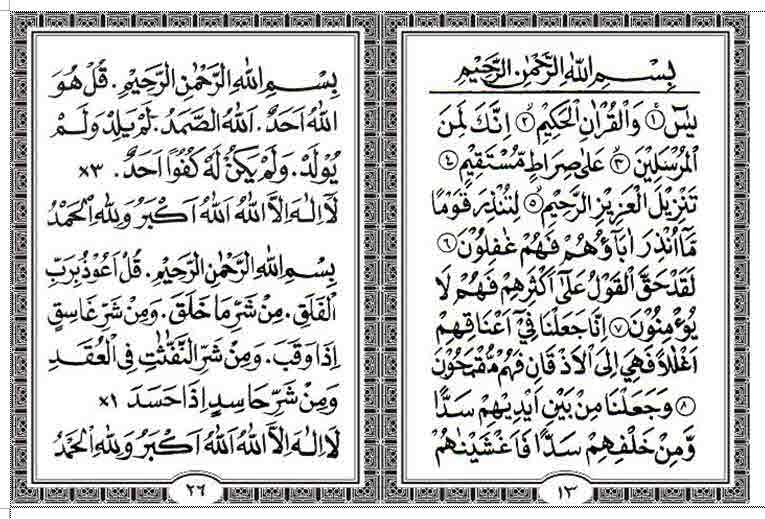 بِسْمِ اللهِ الرَّحْمٰنِ الرَّحِيْمِ
يٰسٓ ۝١ وَالْقُرْاٰنِ الْحَكِيْمِ ۝٢ اِنَّكَ لَمِنَ
الْمُرْسَلِيْنَ ۝٣ عَلٰى صِرَاطٍ مُّسْتَقِيْمٍ ۝٤
تَنْزِيْلَ الْعَزِيْزِ الرَّحِيْمِ ۝٥ لِتُنْذِرَ قَوْمًا
مَّآ اُنْذِرَ اٰبَاۤؤُهُمْ فَهُمْ غٰفِلُوْنَ ۝٦
لَقَدْ حَقَّ الْقَوْلُ عَلٰٓى اَكْثَرِهِمْ فَهُمْ لَا
يُؤْمِنُوْنَ ۝٧ اِنَّا جَعَلْنَا فِيْٓ اَعْنَاقِهِمْ
اَغْلٰلًا فَهِيَ اِلَى الْاَذْقَانِ فَهُمْ مُّقْمَحُوْنَ
۝٨ وَجَعَلْنَا مِنْ بَيْنِ اَيْدِيْهِمْ سَدًّا
وَّمِنْ خَلْفِهِمْ سَدًّا فَاَغْشَيْنٰهُمْ
١٣
بِسْمِ اللهِ الرَّحْمٰنِ الرَّحِيْمِ. قُلْ هُوَ
اللهُ اَحَدٌ. اَللهُ الصَّمَدُ. لَمْ يَلِدْ وَلَمْ
يُوْلَدْ. وَلَمْ يَكُنْ لَهُ كُفُوًا اَحَدٌ. ٣×
لَآاِلٰهَ اِلَّا اللهُ اَللهُ اَكْبَرُ وَلِلّٰهِ الْحَمْدُ
بِسْمِ اللهِ الرَّحْمٰنِ الرَّحِيْمِ. قُلْ اَعُوْذُ بِرَبِّ
الْفَلَقِ. مِنْ شَرِّ مَا خَلَقَ. وَمِنْ شَرِّ غَاسِقٍ
اِذَا وَقَبَ. وَمِنْ شَرِّ النَّفّٰثٰتِ فِي الْعُقَدِ
وَمِنْ شَرِّ حَاسِدٍ اِذَا حَسَدَ ١×
لَآاِلٰهَ اِلَّا اللهُ اَللهُ اَكْبَرُ وَلِلّٰهِ الْحَمْدُ
٢٦